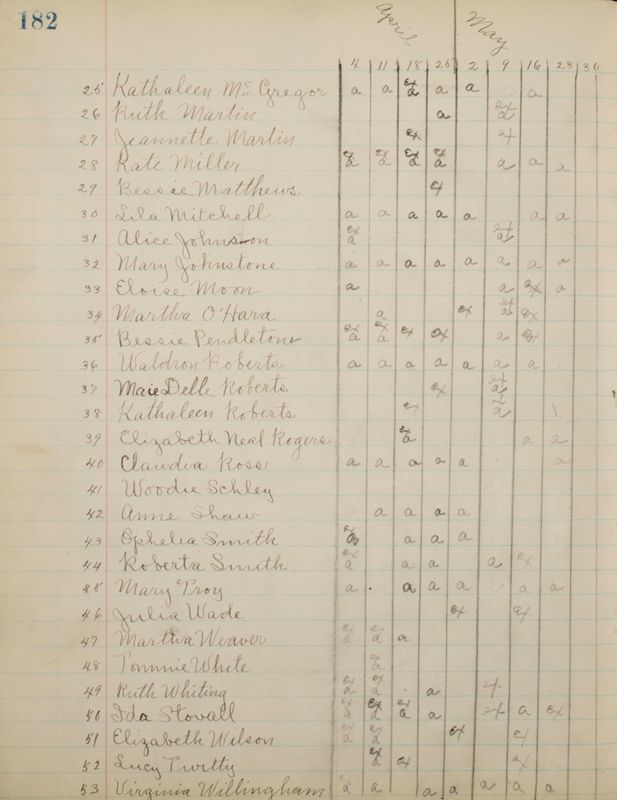 182
April May
4 11 18 25 2 9 16 23 30
25 Kathaleen McGregor a a ex a a a a
26 Ruth Martin a ex a
27 Jeannette Martin ex ex
28 Kate Miller ex a ex a ex a ex a a a a
29 Bessie Matthews ex
30 Lila Mitchell a a a a a a a
31 Alice Johnson ex a ex a
32 Mary Johnstone a a a a a a a a
33 Eloise Moon a a ex a
34 Martha O'Hara a ex ex a ex
35 Bessie Pendleton ex a ex a ex ex a ex
36 Waldron Roberts a a a a a a a
37 Maie Delle Roberts ex ex a
38 Kathaleen Roberts ex a \
39 Elizabeth Neal Rogers ex a a a
40 Claudia Ross a a a a a a
41 Woodie Schley
42 Anne Shaw a a a a
43 Ophelia Smith ex a a a a
44 Roberta Smith ex a a a a ex
45 Mary Troy a . a a a a a
46 Julia Wade ex ex
47 Martha Weaver ex a ex a a
48 Tommie White ex a
49 Ruth Whiting ex a ex a a ex
50 Ida Stovall ex a ex a ex a a ex a ex
51 Elizabeth Wilson ex a ex a ex ex
52 Lucy Twitty ex a ex ex
53 Virginia Willingham a a a a a a a